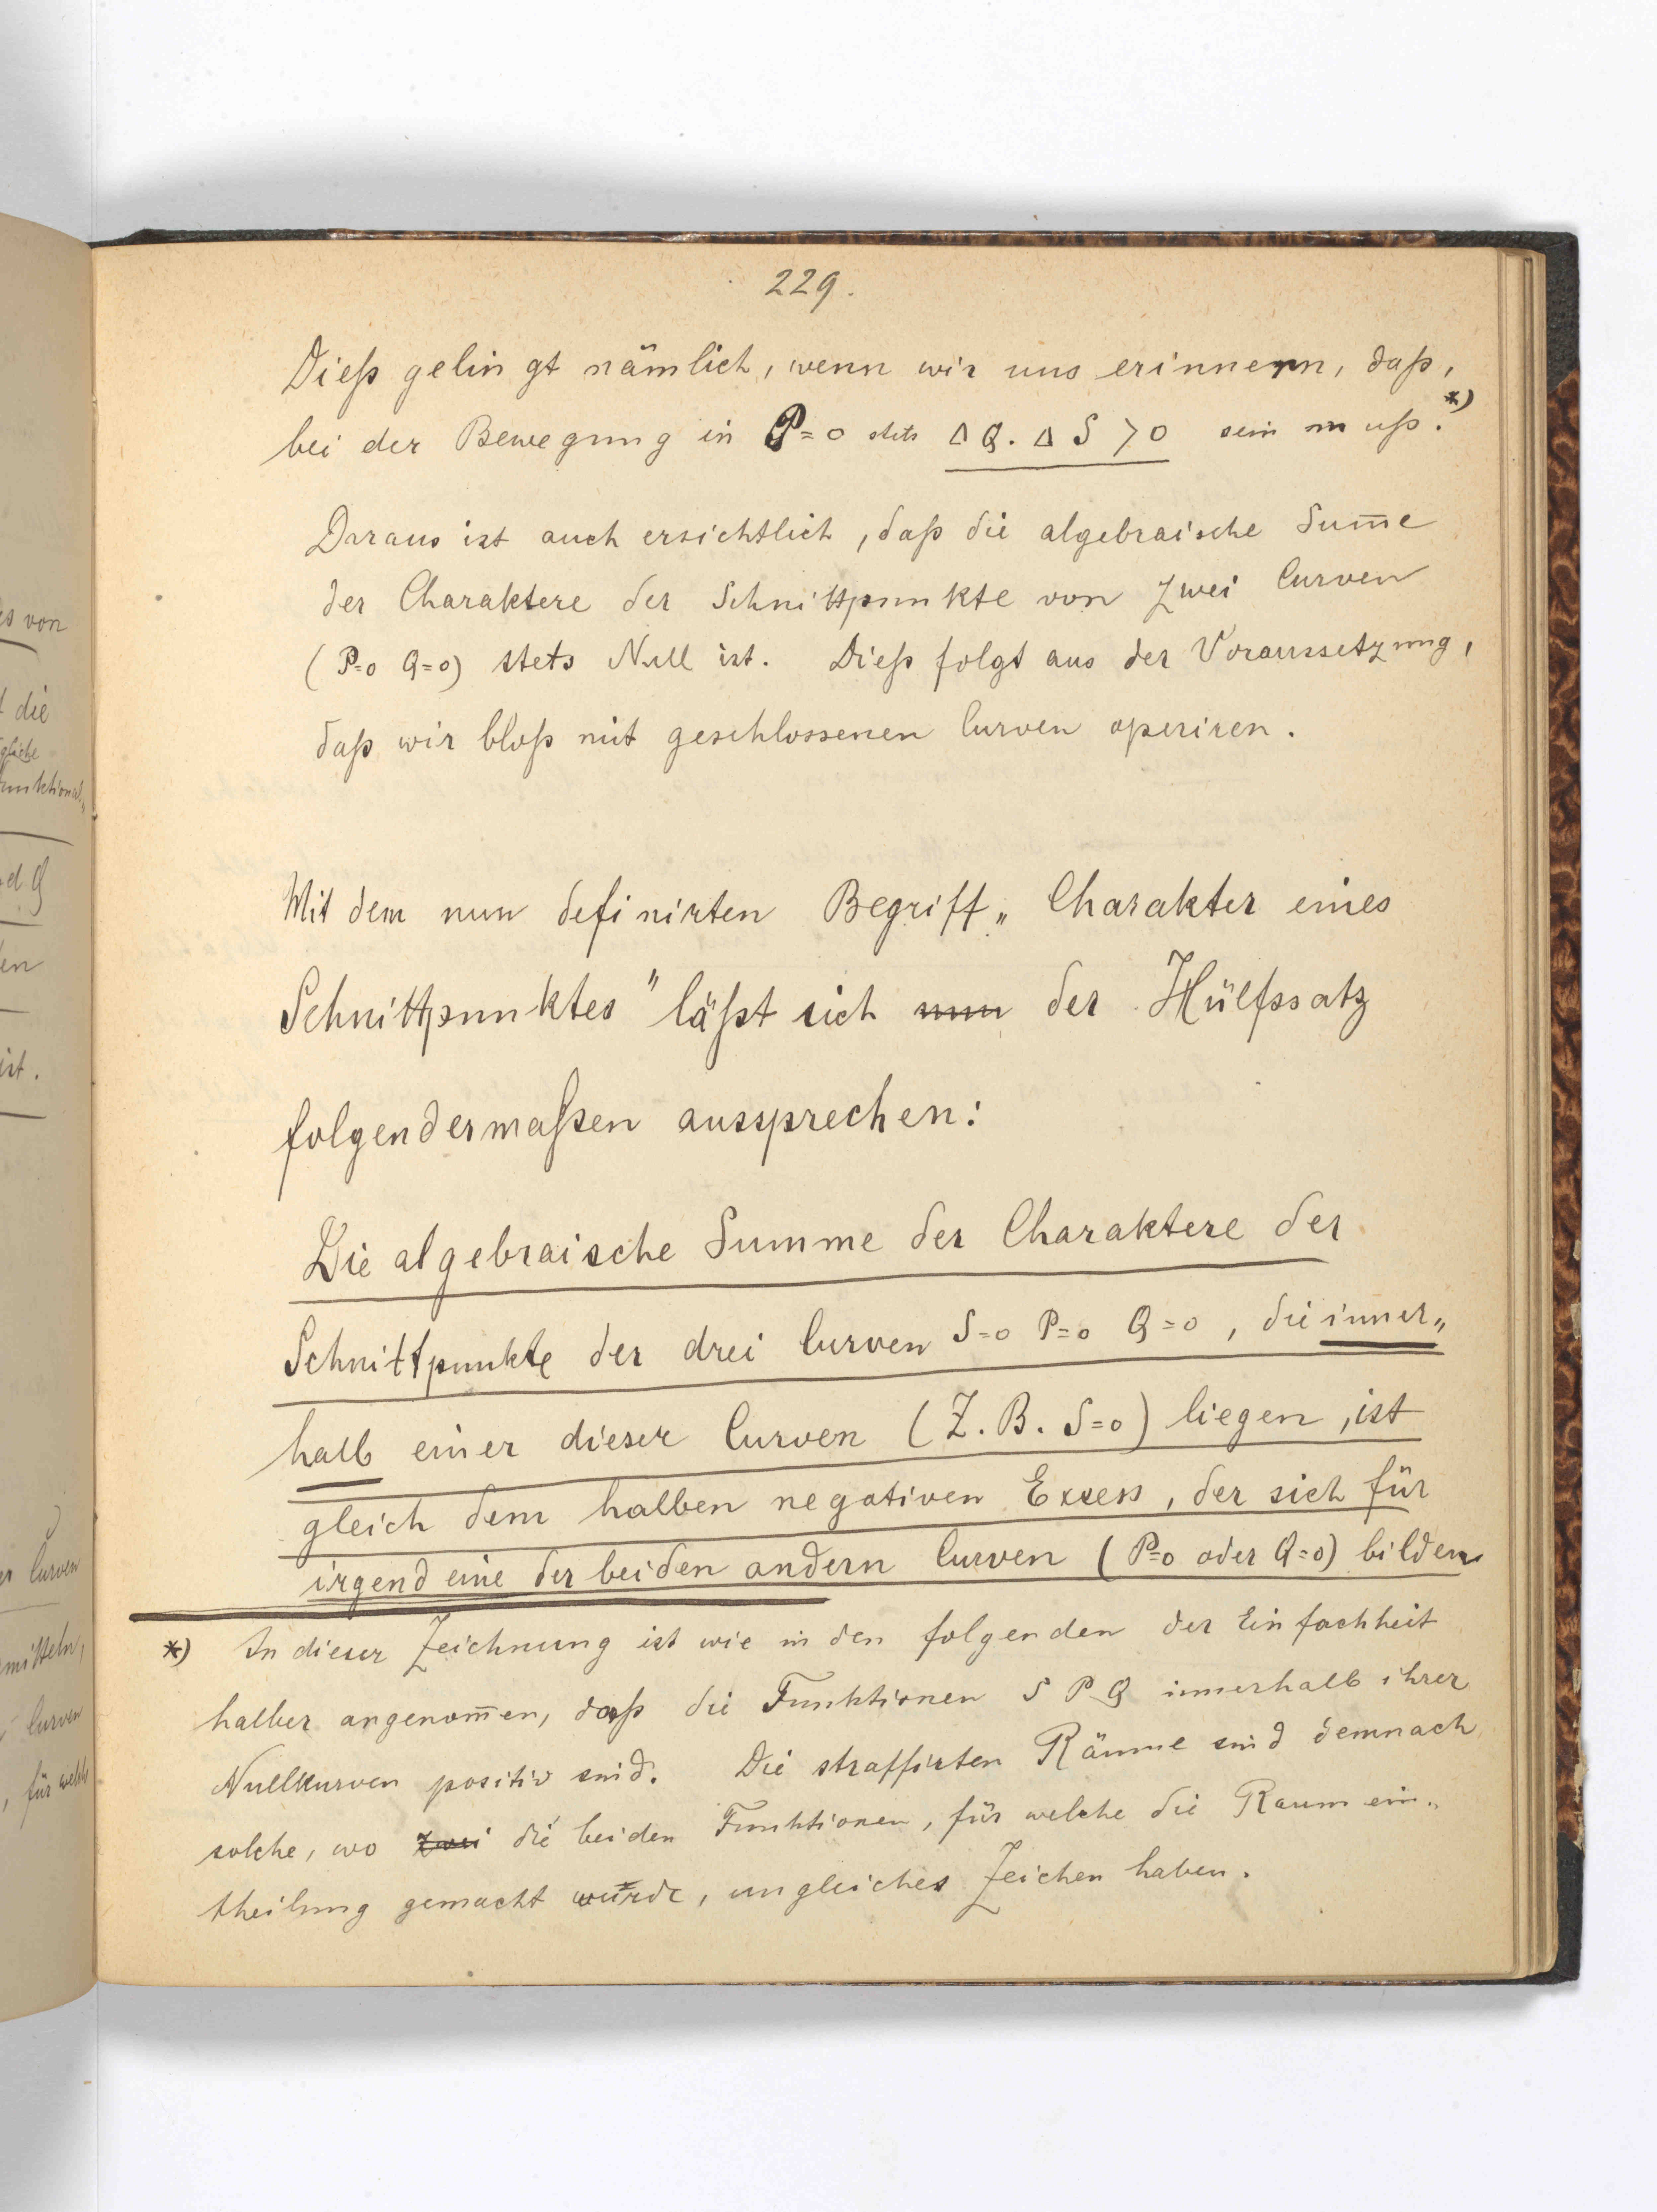 229.
Dieß gelingt nämlich, wenn wir uns erinnern, daß,
bei der Bewegung in P=0 stets Δ Q. Δ S > 0 sein muß.*)
Daraus ist auch ersichtlich, daß die algebraische Sum̅e
der Charaktere der Schnittpunkte von zwei Curven
(P=0 Q=0) stets Null ist. Dieß folgt aus der Voraussetzung,
daß wir bloß mit geschlossenen Curven operiren.
Mit dem nun definirten Begriff „Charakter eines
Schnittpunktes" läßt sich nun der Hülfssatz
folgendermaßen aussprechen:
Die algebraische Summe der Charaktere der
Schnittpunkte der drei Curven S=0 P=0 Q=0, die inner„
halb einer dieser Curven (Z.B. S=0) liegen, ist
gleich dem halben negativen Excess, der sich für
irgend eine der beiden andern Curven (P=0 oder Q=0) bilden
*) In dieser Zeichnung ist wie in den folgenden der Einfachheit
halber angenom̅en, daß die Funktionen S P Q innerhalb ihrer
Nullkurven positiv sind. Die straffirten Räume sind demnach
solche, wo zwei die beiden Funktionen, für welche die Raumein„
theilung gemacht wurde, ungleiches Zeichen haben.
es von
die
Funktional„
d Q
en
ist.
er Curven
mitteln,
Curven
, für welche